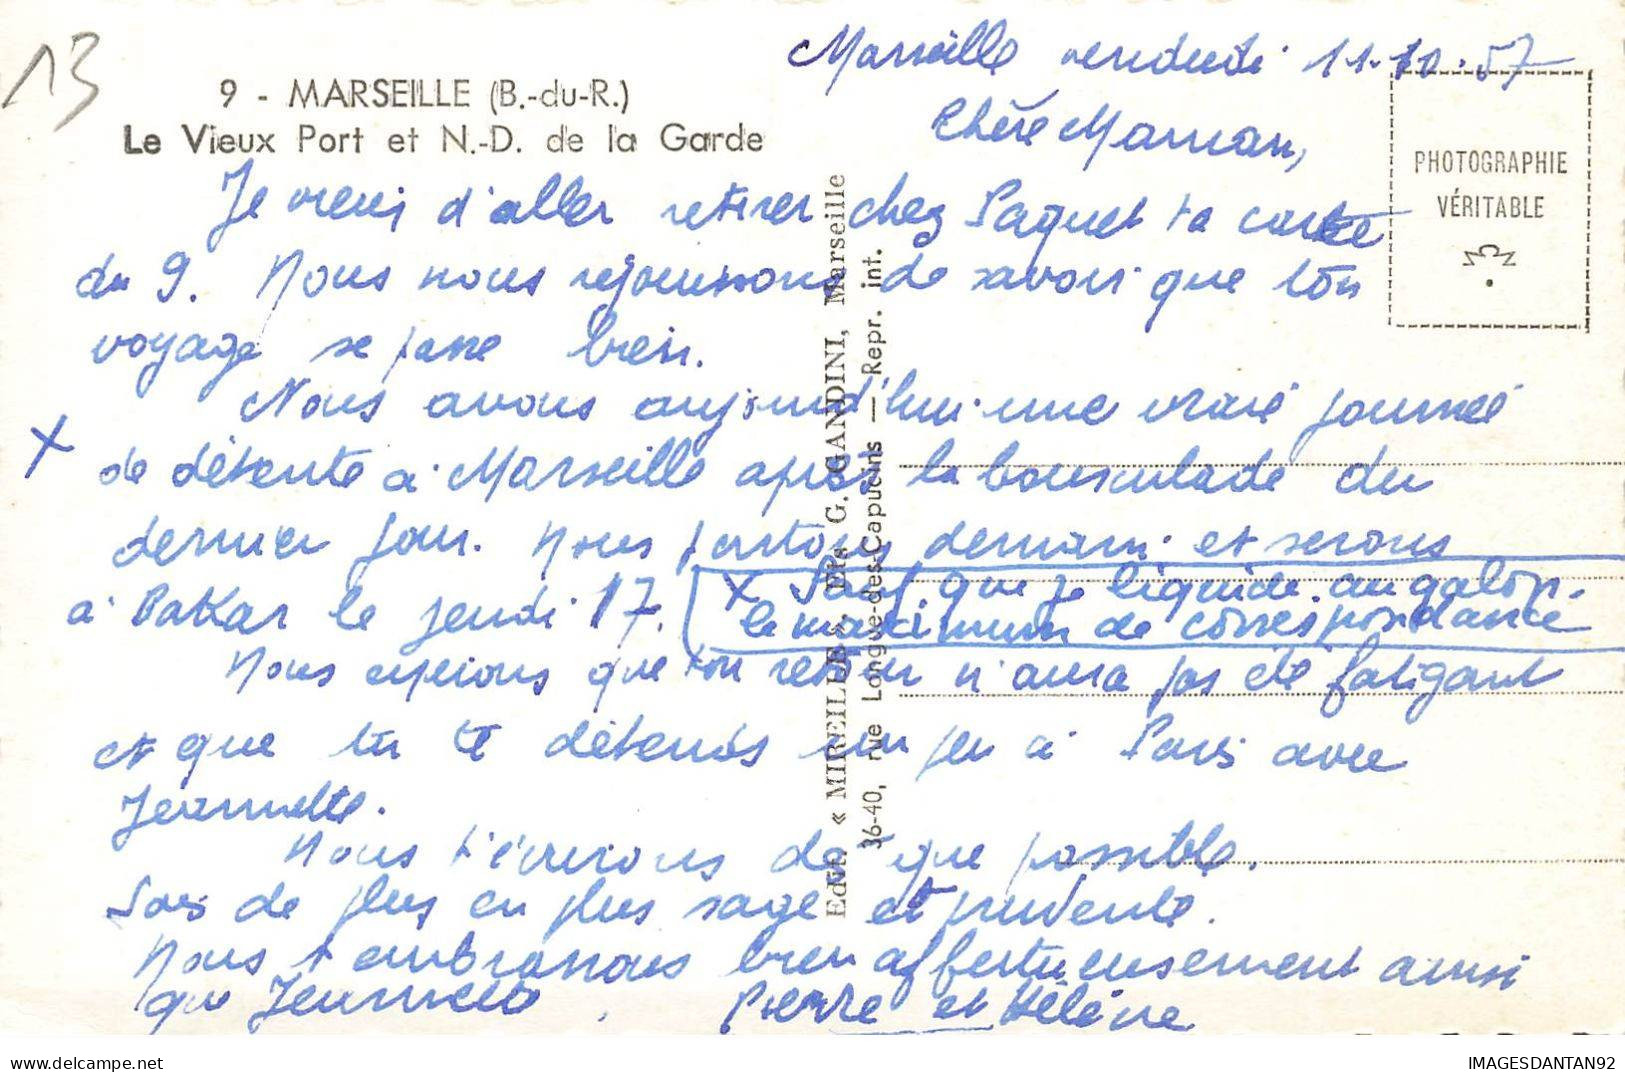 13
9 - MARSEILLE (B.-du-R.)
Le Vieux Port et N.-D. de la Garde
PHOTOGRAPHIE
VÉRITABLE
Edit. « MIREILLE », Ets G. GANDINI, Marseille
36-40, rue Longue-des-Capucins — Repr. int.
Marseille vendredi 11.10.57
Chère Maman,
Je viens d'aller retirer chez Paquet ta carte
du 9. Nous nous réjouissons de savoir que ton
voyage se passe bien.
Nous avons aujourd'hui une vraie journée
X de détente à Marseille après la bousculade du
dernier jour. Nous partons demain et serons
à Dakar le jeudi 17.
X Sauf que je liquide au galop
le maximum de correspondance
Nous espérons que ton retour n'aura pas été fatigant
et que tu te détends un peu à Paris avec
Jeannette.
Nous t'écrirons dès que possible.
Sois de plus en plus sage et prudente.
Nous t'embrassons bien affectueusement ainsi
que Jeannette, Pierre et Hélène
IMAGESDANTAN92